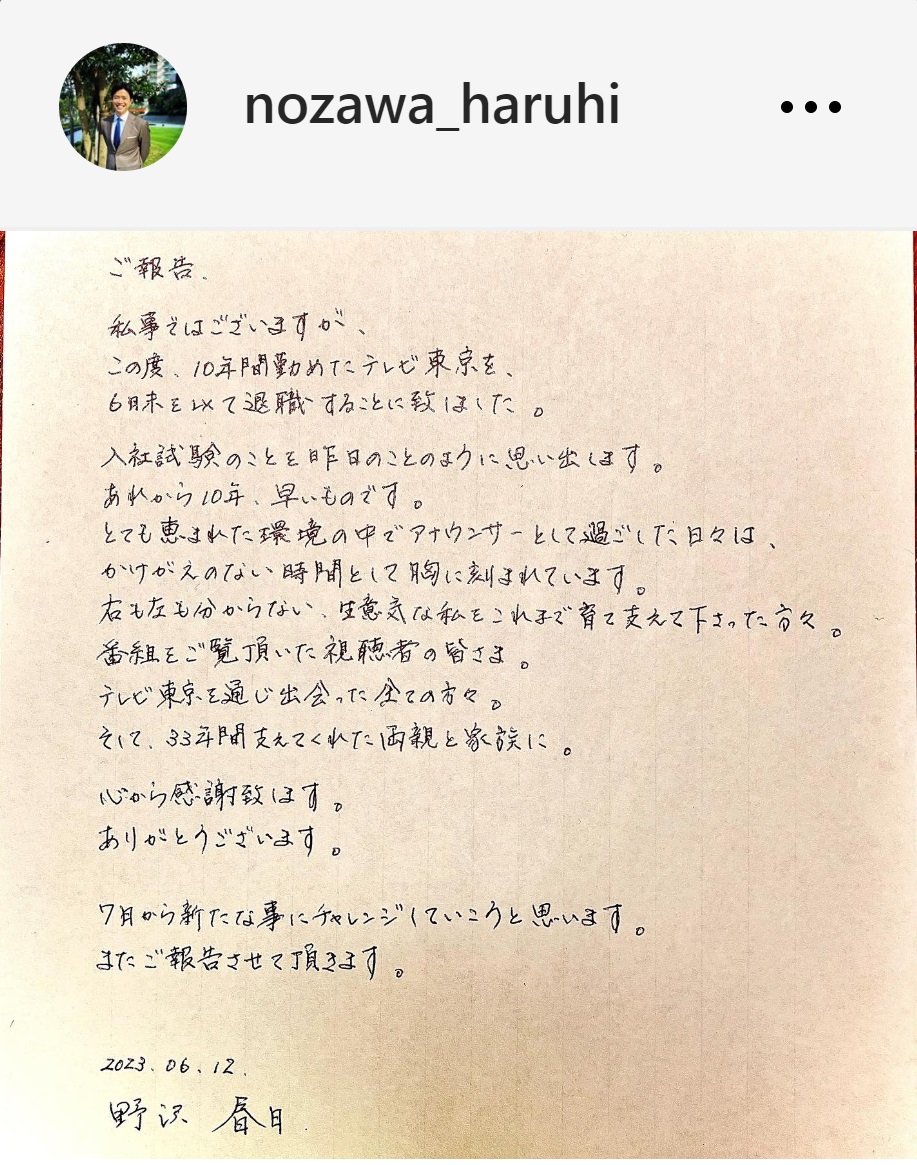 nozawa_haruhi
ご報告.
私事ではございますが、
この度、10年間勤めたテレビ東京を、
6月末を以て退職することに致しました。
入社試験のことを昨日のことのように思い出します。
あれから10年、早いものです。
とても恵まれた環境の中でアナウンサーとして過ごした日々は、
かけがえのない時間として胸に刻まれています。
右も左も分からない、生意気な私をこれまで育て支えて下さった方々。
番組をご覧頂いた視聴者の皆さま。
テレビ東京を通じ出会った全ての方々。
そして、33年間支えてくれた両親と家族に。
心から感謝致します。
ありがとうございます。
7月から新たな事にチャレンジしていこうと思います。
またご報告させて頂きます。
2023.06.12.
野沢 春日.